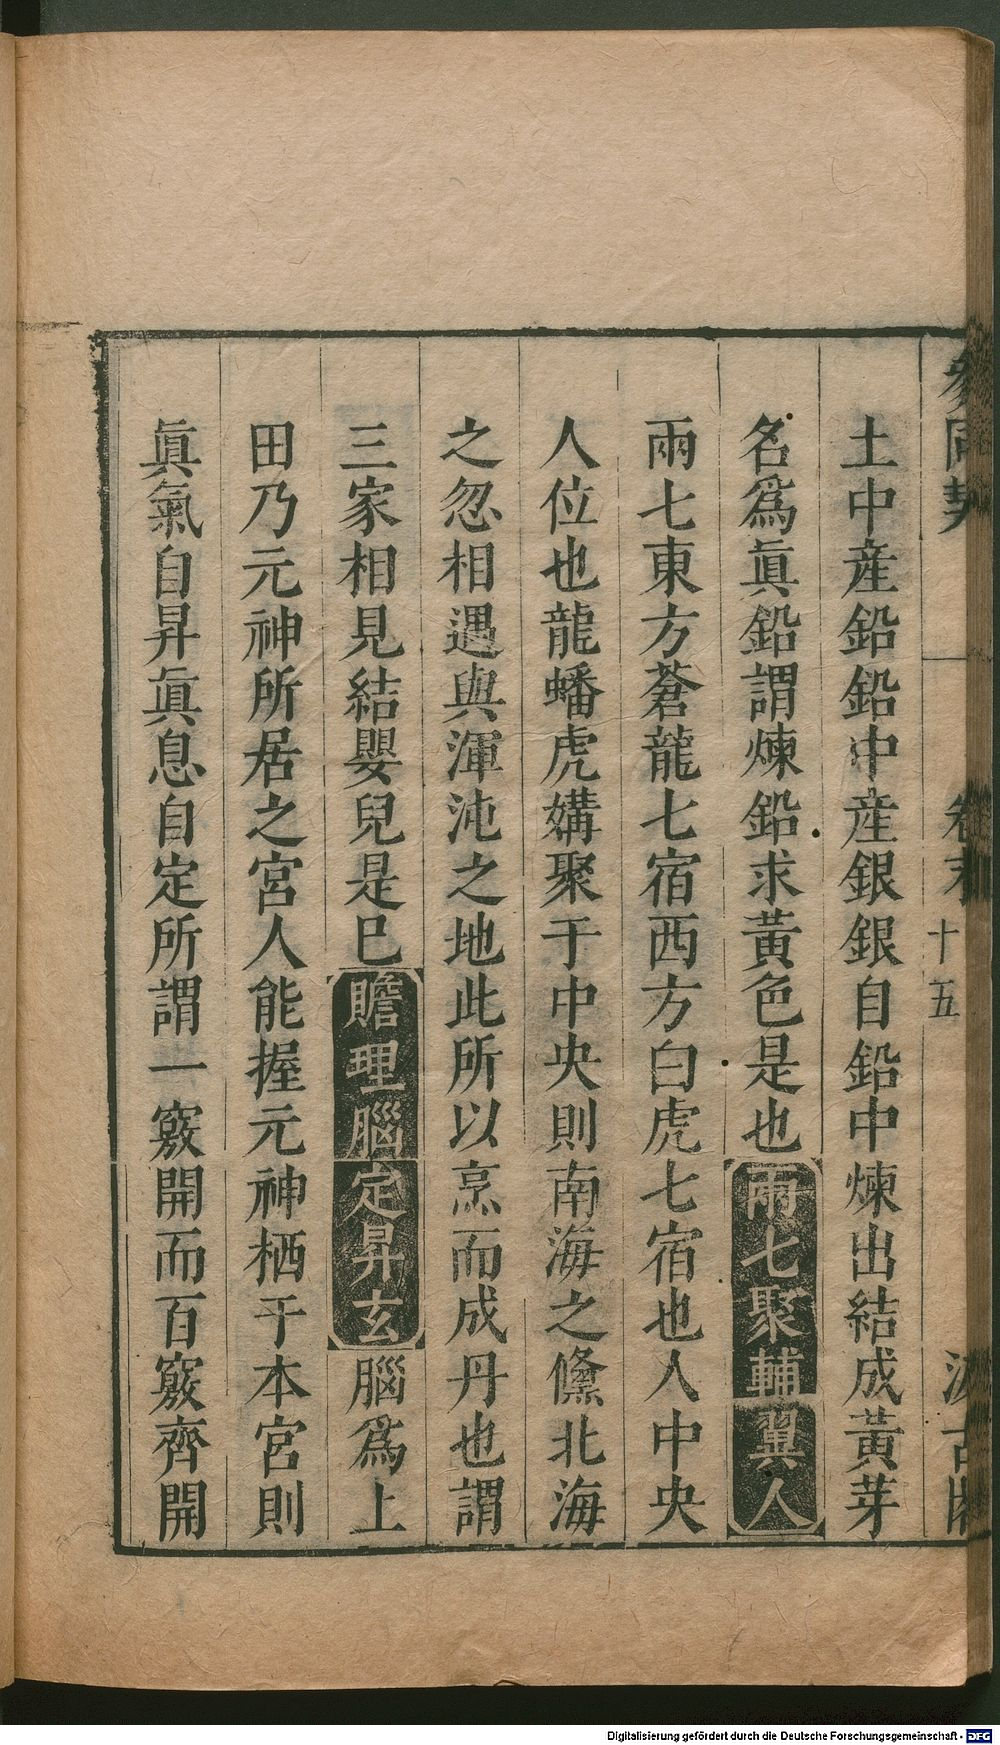 土中産鉛鉛中産銀銀自鉛中煉出結成黃芽
名爲眞鉛謂煉鉛求黃色是也兩七聚輔翼人
兩七東方蒼龍七宿西方白虎七宿也人中央
人位也龍蟠虎媾聚于中央則南海之儵北海
之忽相遇與渾沌之地此所以烹而成丹也謂
三家相見結嬰兒是巳贍理腦定昇玄腦爲上
田乃元神所居之宮人能握元神栖于本宮則
眞氣自昇眞息自定所謂一竅開而百竅齊開
參同契 卷末 十五 汲古閣
Digitalisierung gefördert durch die Deutsche Forschungsgemeinschaft - DFG